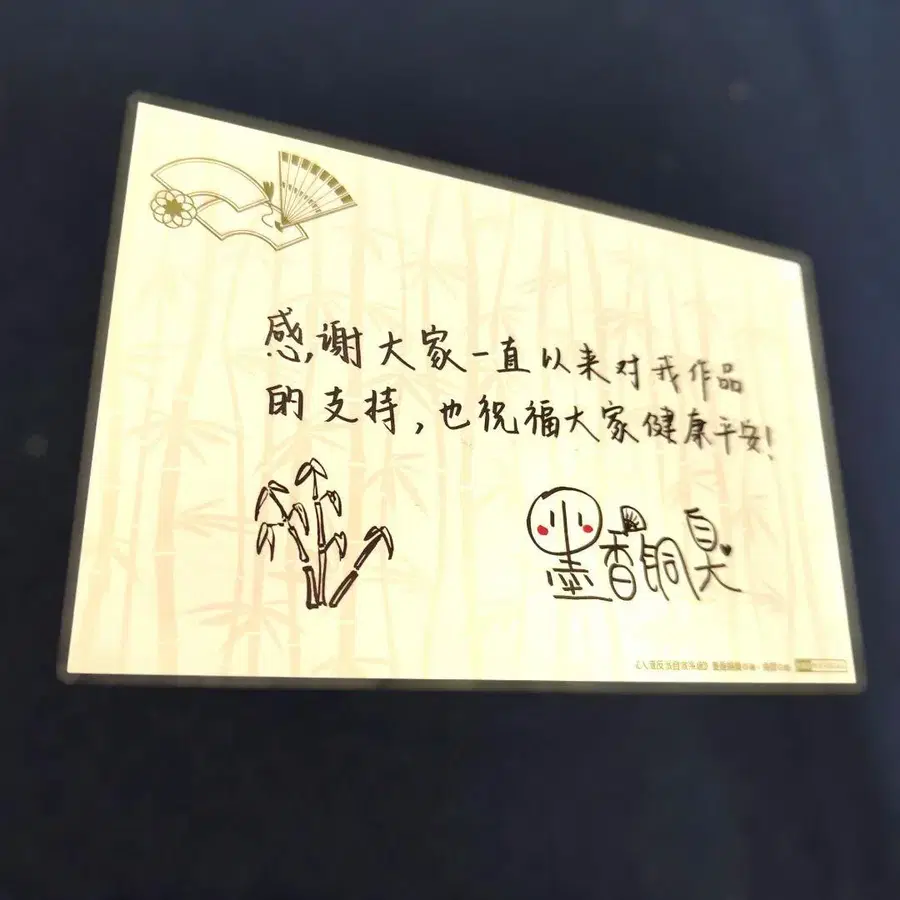 感谢大家一直以来对我作品
的支持,也祝福大家健康平安!
墨香铜臭